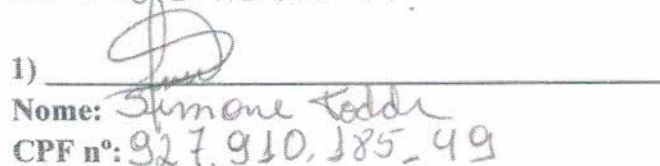 1)
Nome: Simone Toddi
CPF nº: 927.910.185-49